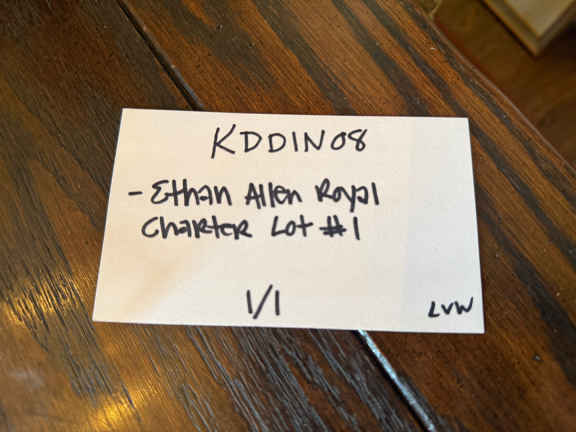 KDDIN08
- Ethan Allen Royal
Charter Lot #1
1/1
LVW